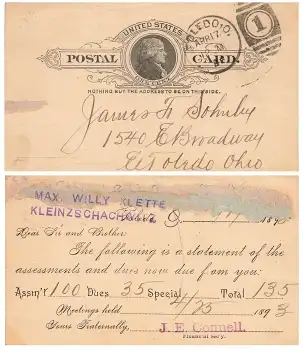 UNITED STATES
POSTAL CARD.
ONE CENT
TOLEDO, O.
APR 17
1
NOTHING BUT THE ADDRESS TO BE ON THIS SIDE.
James F.
1540 E Broadway
E Toledo Ohio
MAX. WILLY KLETTE
KLEINZSCHACHWITZ
189
Dear Sir and Brother:
The following is a statement of the
assessments and dues now due from you:
Assm't 1 00 Dues 35 Special Total 1 35
Meetings held 4/25 1893
Yours Fraternally, J. E. Connell.
Financial Secy.